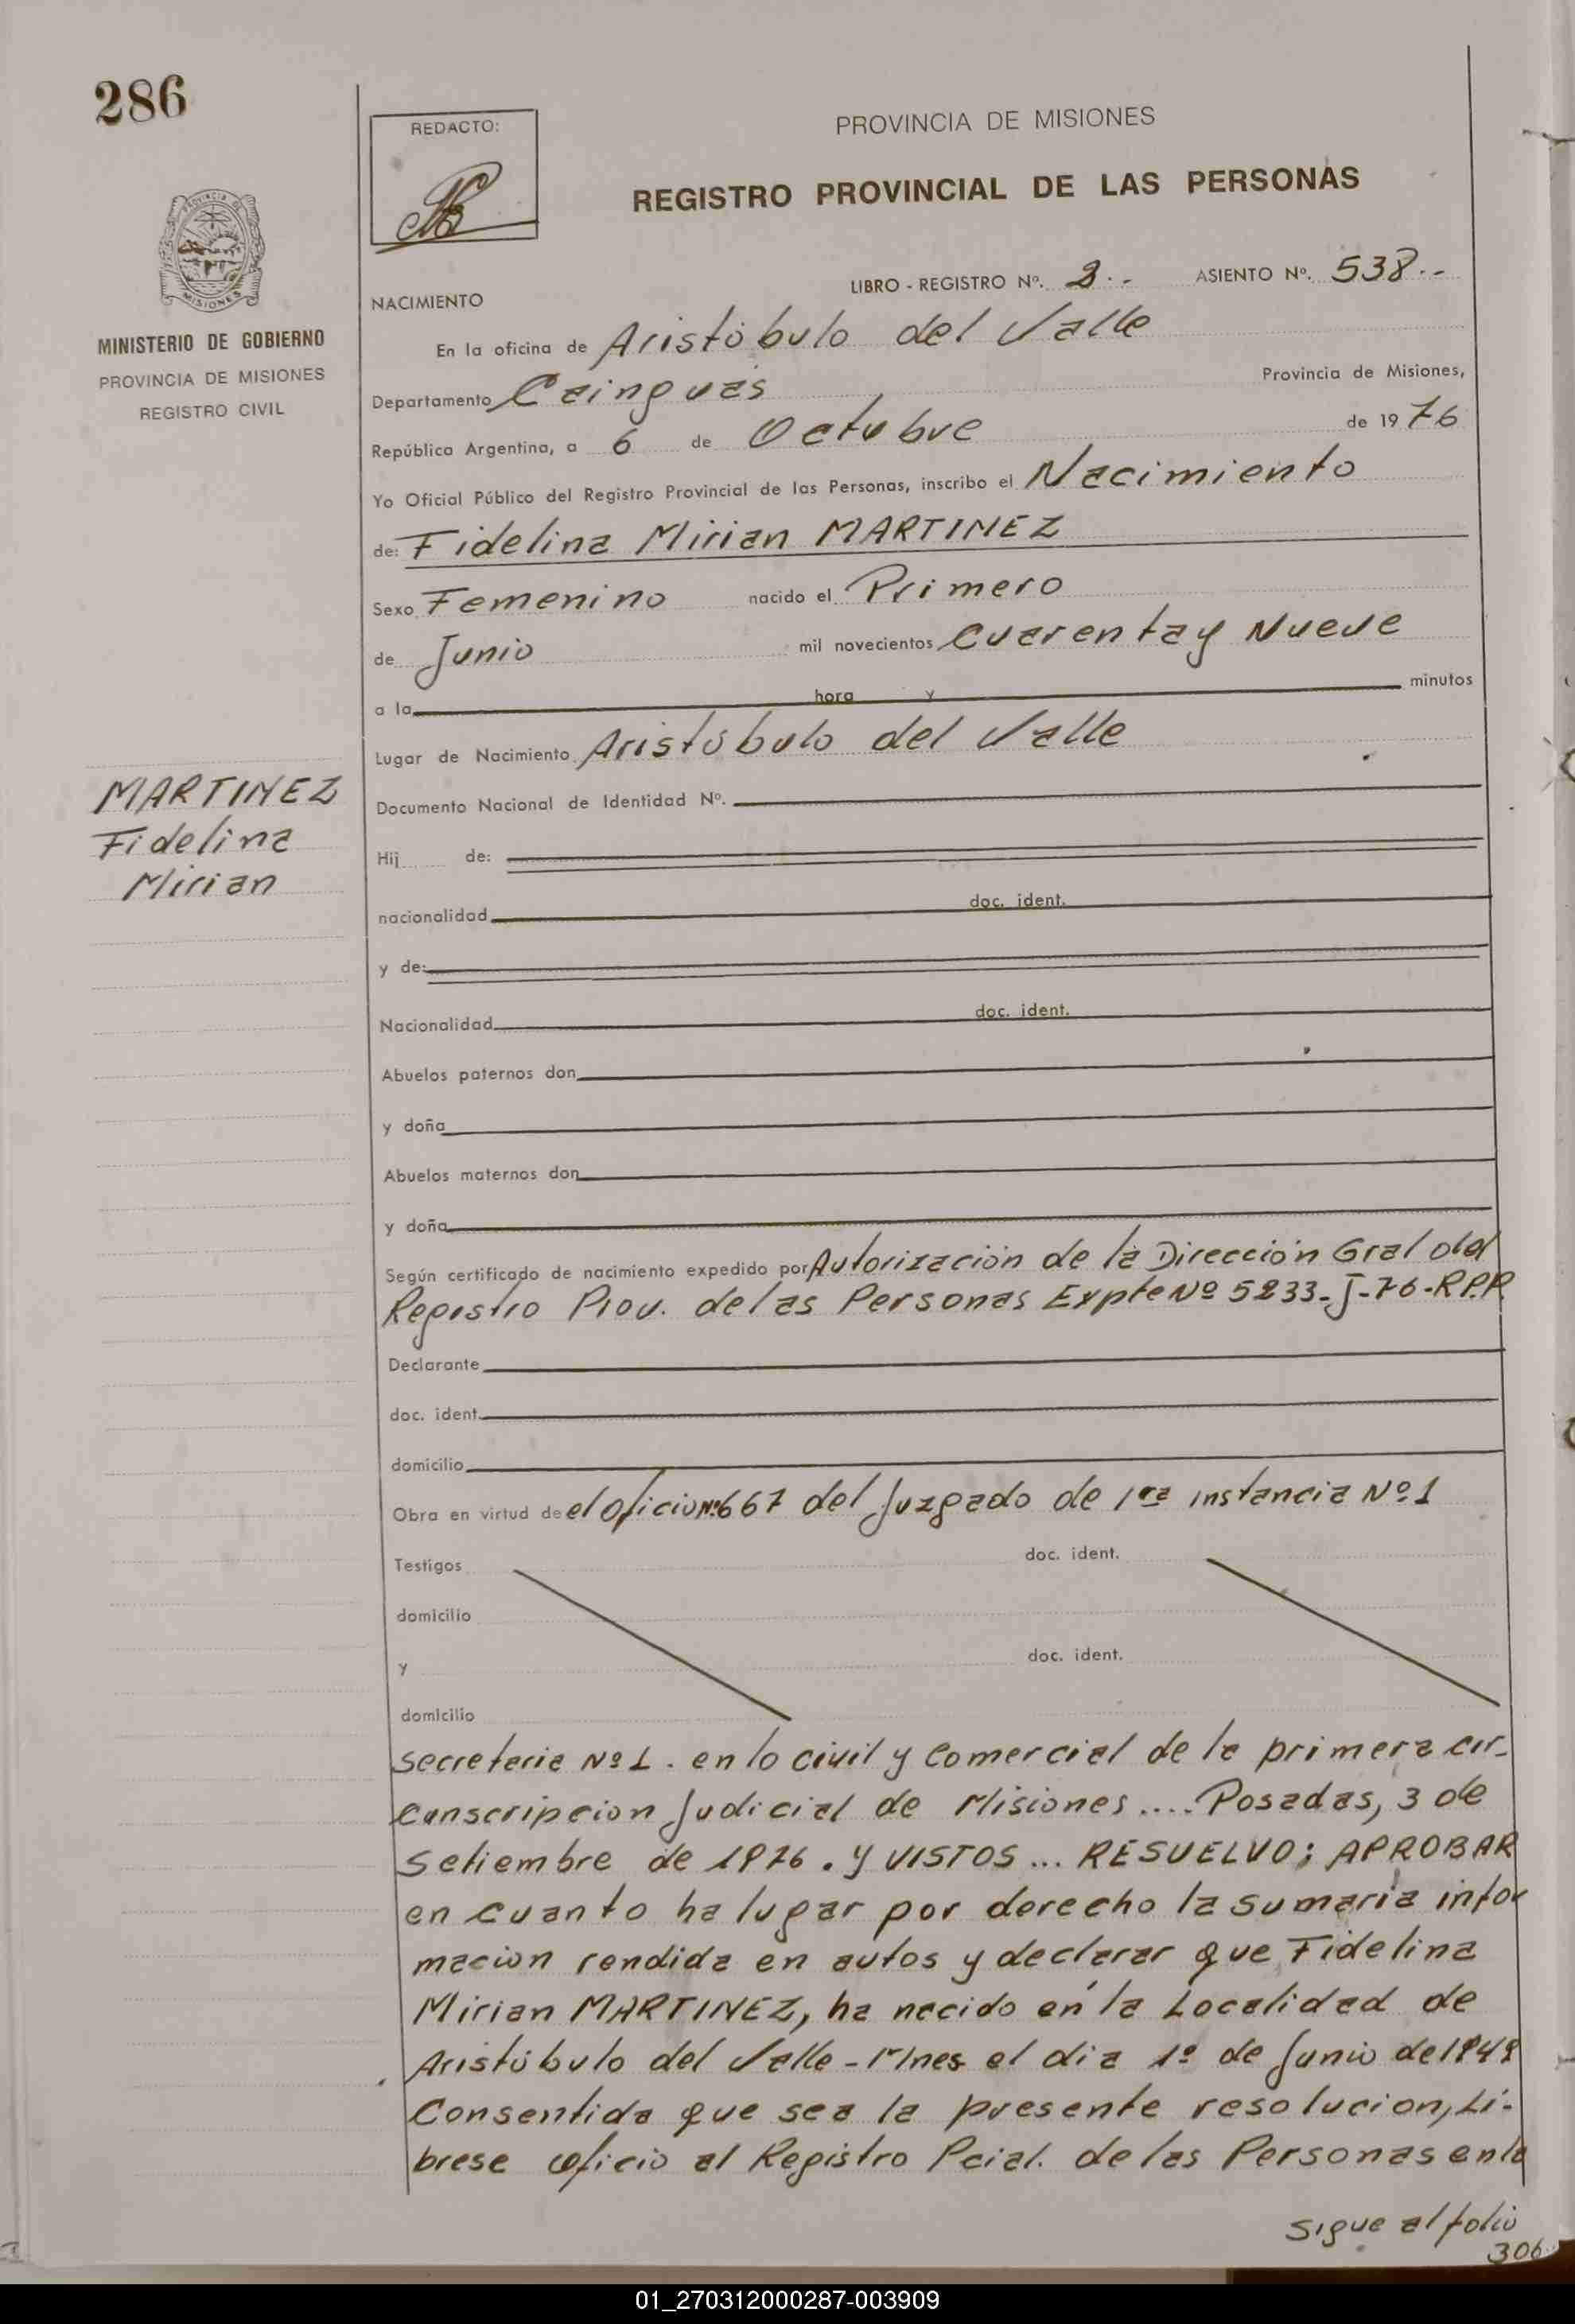 286
REDACTO:
PROVINCIA DE MISIONES
REGISTRO PROVINCIAL DE LAS PERSONAS
MISIONES
MINISTERIO DE GOBIERNO
PROVINCIA DE MISIONES
REGISTRO CIVIL
LIBRO - REGISTRO Nº. 2.- ASIENTO Nº. 538.-
NACIMIENTO
En la oficina de Aristóbulo del Valle
Departamento Cainguas Provincia de Misiones,
República Argentina, a 6 de Octubre de 1976
Yo Oficial Público del Registro Provincial de las Personas, inscribo el Nacimiento
de: Fidelina Mirian MARTINEZ
Sexo Femenino nacido el Primero
de Junio mil novecientos Cuarenta y Nueve
a la hora y minutos
Lugar de Nacimiento Aristóbulo del Valle
MARTINEZ
Fidelina
Mirian
Documento Nacional de Identidad Nº.
Hij de:
nacionalidad doc. ident.
y de:
Nacionalidad doc. ident.
Abuelos paternos don
y doña
Abuelos maternos don
y doña
Según certificado de nacimiento expedido por Autorización de la Dirección Gral del
Registro Prov. de las Personas Expte Nº 5233-J-76-R.P.P.
Declarante
doc. ident.
domicilio
Obra en virtud de el oficio Nº 667 del Juzgado de 1ra instancia Nº 1
Testigos doc. ident.
domicilio
y doc. ident.
domicilio
secretaria Nº 1. en lo civil y Comercial de la primera cir-
cunscripcion Judicial de Misiones.... Posadas, 3 de
Setiembre de 1976. y VISTOS... RESUELVO; APROBAR
en cuanto ha lugar por derecho la sumaria infor
macion rendida en autos y declarar que Fidelina
Mirian MARTINEZ, ha nacido en la Localidad de
Aristóbulo del Valle - Mnes el dia 1º de Junio de 1949
Consentida que sea la presente resolucion, Lí-
brese oficio al Registro Pcial. de las Personas en la
Sigue al folio
306
01_270312000287-003909